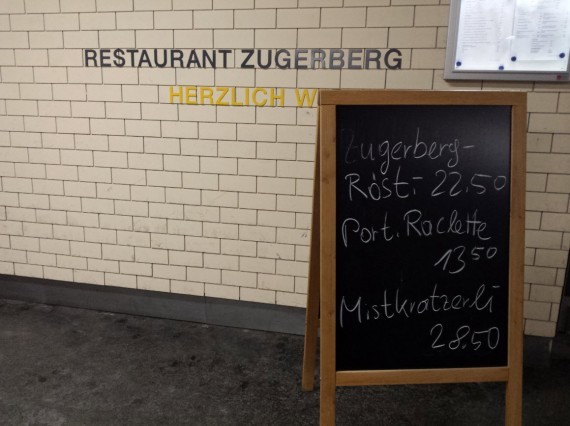 RESTAURANT ZUGERBERG
HERZLICH W
Zugerberg-
Rösti 22.50
Port. Raclette
13 50
Mistkratzerli
28.50